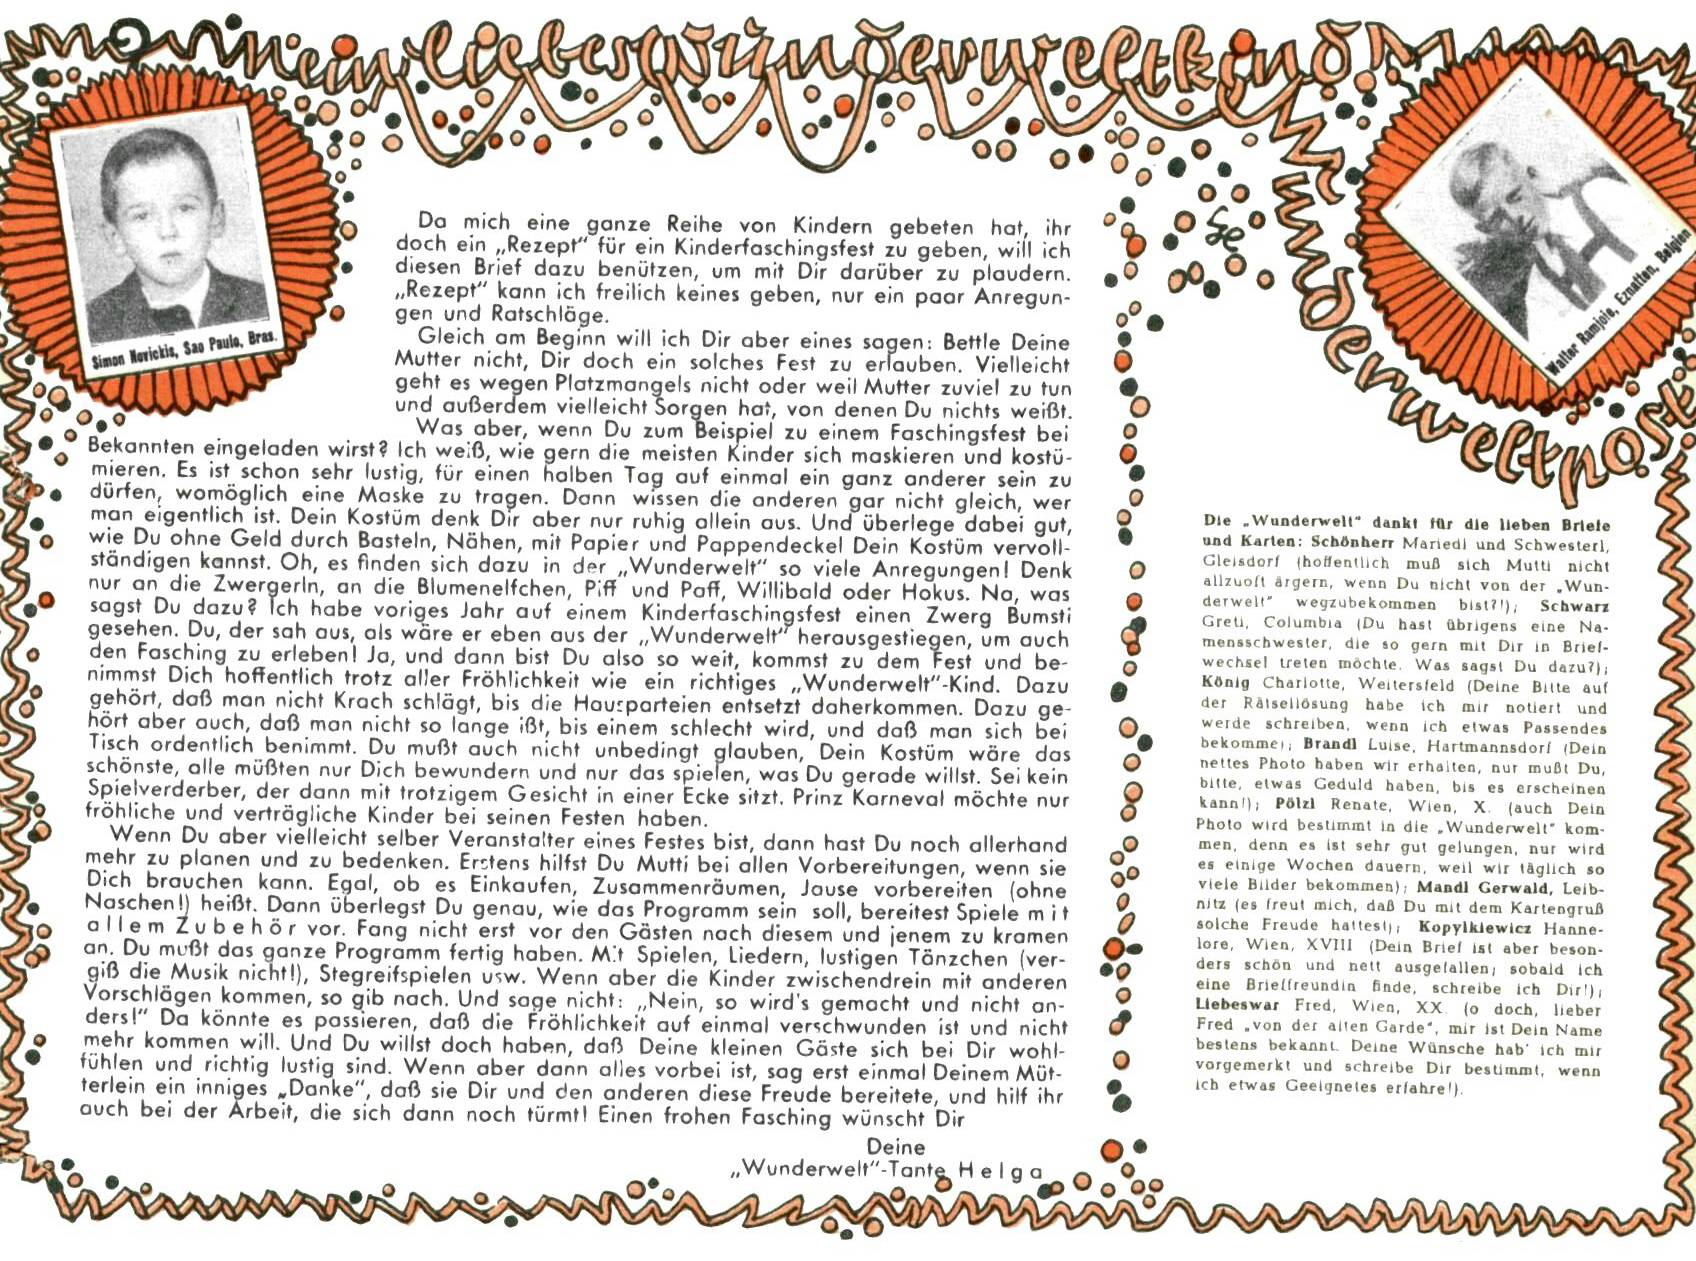 Mein liebes Wunderweltkind
Simon Novickis, Sao Paulo, Bras.
Da mich eine ganze Reihe von Kindern gebeten hat, ihr
doch ein „Rezept“ für ein Kinderfaschingsfest zu geben, will ich
diesen Brief dazu benützen, um mit Dir darüber zu plaudern.
„Rezept“ kann ich freilich keines geben, nur ein paar Anregun-
gen und Ratschläge.
Gleich am Beginn will ich Dir aber eines sagen: Bettle Deine
Mutter nicht, Dir doch ein solches Fest zu erlauben. Vielleicht
geht es wegen Platzmangels nicht oder weil Mutter zuviel zu tun
und außerdem vielleicht Sorgen hat, von denen Du nichts weißt.
Was aber, wenn Du zum Beispiel zu einem Faschingsfest bei
Bekannten eingeladen wirst? Ich weiß, wie gern die meisten Kinder sich maskieren und kostü-
mieren. Es ist schon sehr lustig, für einen halben Tag auf einmal ein ganz anderer sein zu
dürfen, womöglich eine Maske zu tragen. Dann wissen die anderen gar nicht gleich, wer
man eigentlich ist. Dein Kostüm denk Dir aber nur ruhig allein aus. Und überlege dabei gut,
wie Du ohne Geld durch Basteln, Nähen, mit Papier und Pappendeckel Dein Kostüm vervoll-
ständigen kannst. Oh, es finden sich dazu in der „Wunderwelt“ so viele Anregungen! Denk
nur an die Zwergerln, an die Blumenelfchen, Piff und Paff, Willibald oder Hokus. Na, was
sagst Du dazu? Ich habe voriges Jahr auf einem Kinderfaschingsfest einen Zwerg Bumsti
gesehen. Du, der sah aus, als wäre er eben aus der „Wunderwelt“ herausgestiegen, um auch
den Fasching zu erleben! Ja, und dann bist Du also so weit, kommst zu dem Fest und be-
nimmst Dich hoffentlich trotz aller Fröhlichkeit wie ein richtiges „Wunderwelt“-Kind. Dazu
gehört, daß man nicht Krach schlägt, bis die Hausparteien entsetzt daherkommen. Dazu ge-
hört aber auch, daß man nicht so lange ißt, bis einem schlecht wird, und daß man sich bei
Tisch ordentlich benimmt. Du mußt auch nicht unbedingt glauben, Dein Kostüm wäre das
schönste, alle müßten nur Dich bewundern und nur das spielen, was Du gerade willst. Sei kein
Spielverderber, der dann mit trotzigem Gesicht in einer Ecke sitzt. Prinz Karneval möchte nur
fröhliche und verträgliche Kinder bei seinen Festen haben.
Wenn Du aber vielleicht selber Veranstalter eines Festes bist, dann hast Du noch allerhand
mehr zu planen und zu bedenken. Erstens hilfst Du Mutti bei allen Vorbereitungen, wenn sie
Dich brauchen kann. Egal, ob es Einkaufen, Zusammenräumen, Jause vorbereiten (ohne
Naschen!) heißt. Dann überlegst Du genau, wie das Programm sein soll, bereitest Spiele mit
allem Zubehör vor. Fang nicht erst vor den Gästen nach diesem und jenem zu kramen
an. Du mußt das ganze Programm fertig haben. Mit Spielen, Liedern, lustigen Tänzchen (ver-
giß die Musik nicht!), Stegreifspielen usw. Wenn aber die Kinder zwischendrein mit anderen
Vorschlägen kommen, so gib nach. Und sage nicht: „Nein, so wird's gemacht und nicht an-
ders!“ Da könnte es passieren, daß die Fröhlichkeit auf einmal verschwunden ist und nicht
mehr kommen will. Und Du willst doch haben, daß Deine kleinen Gäste sich bei Dir wohl-
fühlen und richtig lustig sind. Wenn aber dann alles vorbei ist, sag erst einmal Deinem Müt-
terlein ein inniges „Danke“, daß sie Dir und den anderen diese Freude bereitete, und hilf ihr
auch bei der Arbeit, die sich dann noch türmt! Einen frohen Fasching wünscht Dir
Deine
„Wunderwelt“-Tante Helga
Walter Ramjoie, Eznatten, Belgien
Wunderweltpost
Die „Wunderwelt“ dankt für die lieben Briefe
und Karten: Schönherr Mariedl und Schwesterl,
Gleisdorf (hoffentlich muß sich Mutti nicht
allzuoft ärgern, wenn Du nicht von der „Wun-
derwelt“ wegzubekommen bist?!); Schwarz
Greti, Columbia (Du hast übrigens eine Na-
mensschwester, die so gern mit Dir in Brief-
wechsel treten möchte. Was sagst Du dazu?);
König Charlotte, Weitersfeld (Deine Bitte auf
der Rätsellösung habe ich mir notiert und
werde schreiben, wenn ich etwas Passendes
bekomme); Brandl Luise, Hartmannsdorf (Dein
nettes Photo haben wir erhalten, nur mußt Du,
bitte, etwas Geduld haben, bis es erscheinen
kann!); Pölzl Renate, Wien, X. (auch Dein
Photo wird bestimmt in die „Wunderwelt“ kom-
men, denn es ist sehr gut gelungen, nur wird
es einige Wochen dauern, weil wir täglich so
viele Bilder bekommen); Mandl Gerwald, Leib-
nitz (es freut mich, daß Du mit dem Kartengruß
solche Freude hattest); Kopylkiewicz Hanne-
lore, Wien, XVIII (Dein Brief ist aber beson-
ders schön und nett ausgefallen; sobald ich
eine Brieffreundin finde, schreibe ich Dir!);
Liebeswar Fred, Wien, XX. (o doch, lieber
Fred „von der alten Garde“, mir ist Dein Name
bestens bekannt. Deine Wünsche hab' ich mir
vorgemerkt und schreibe Dir bestimmt, wenn
ich etwas Geeignetes erfahre!).